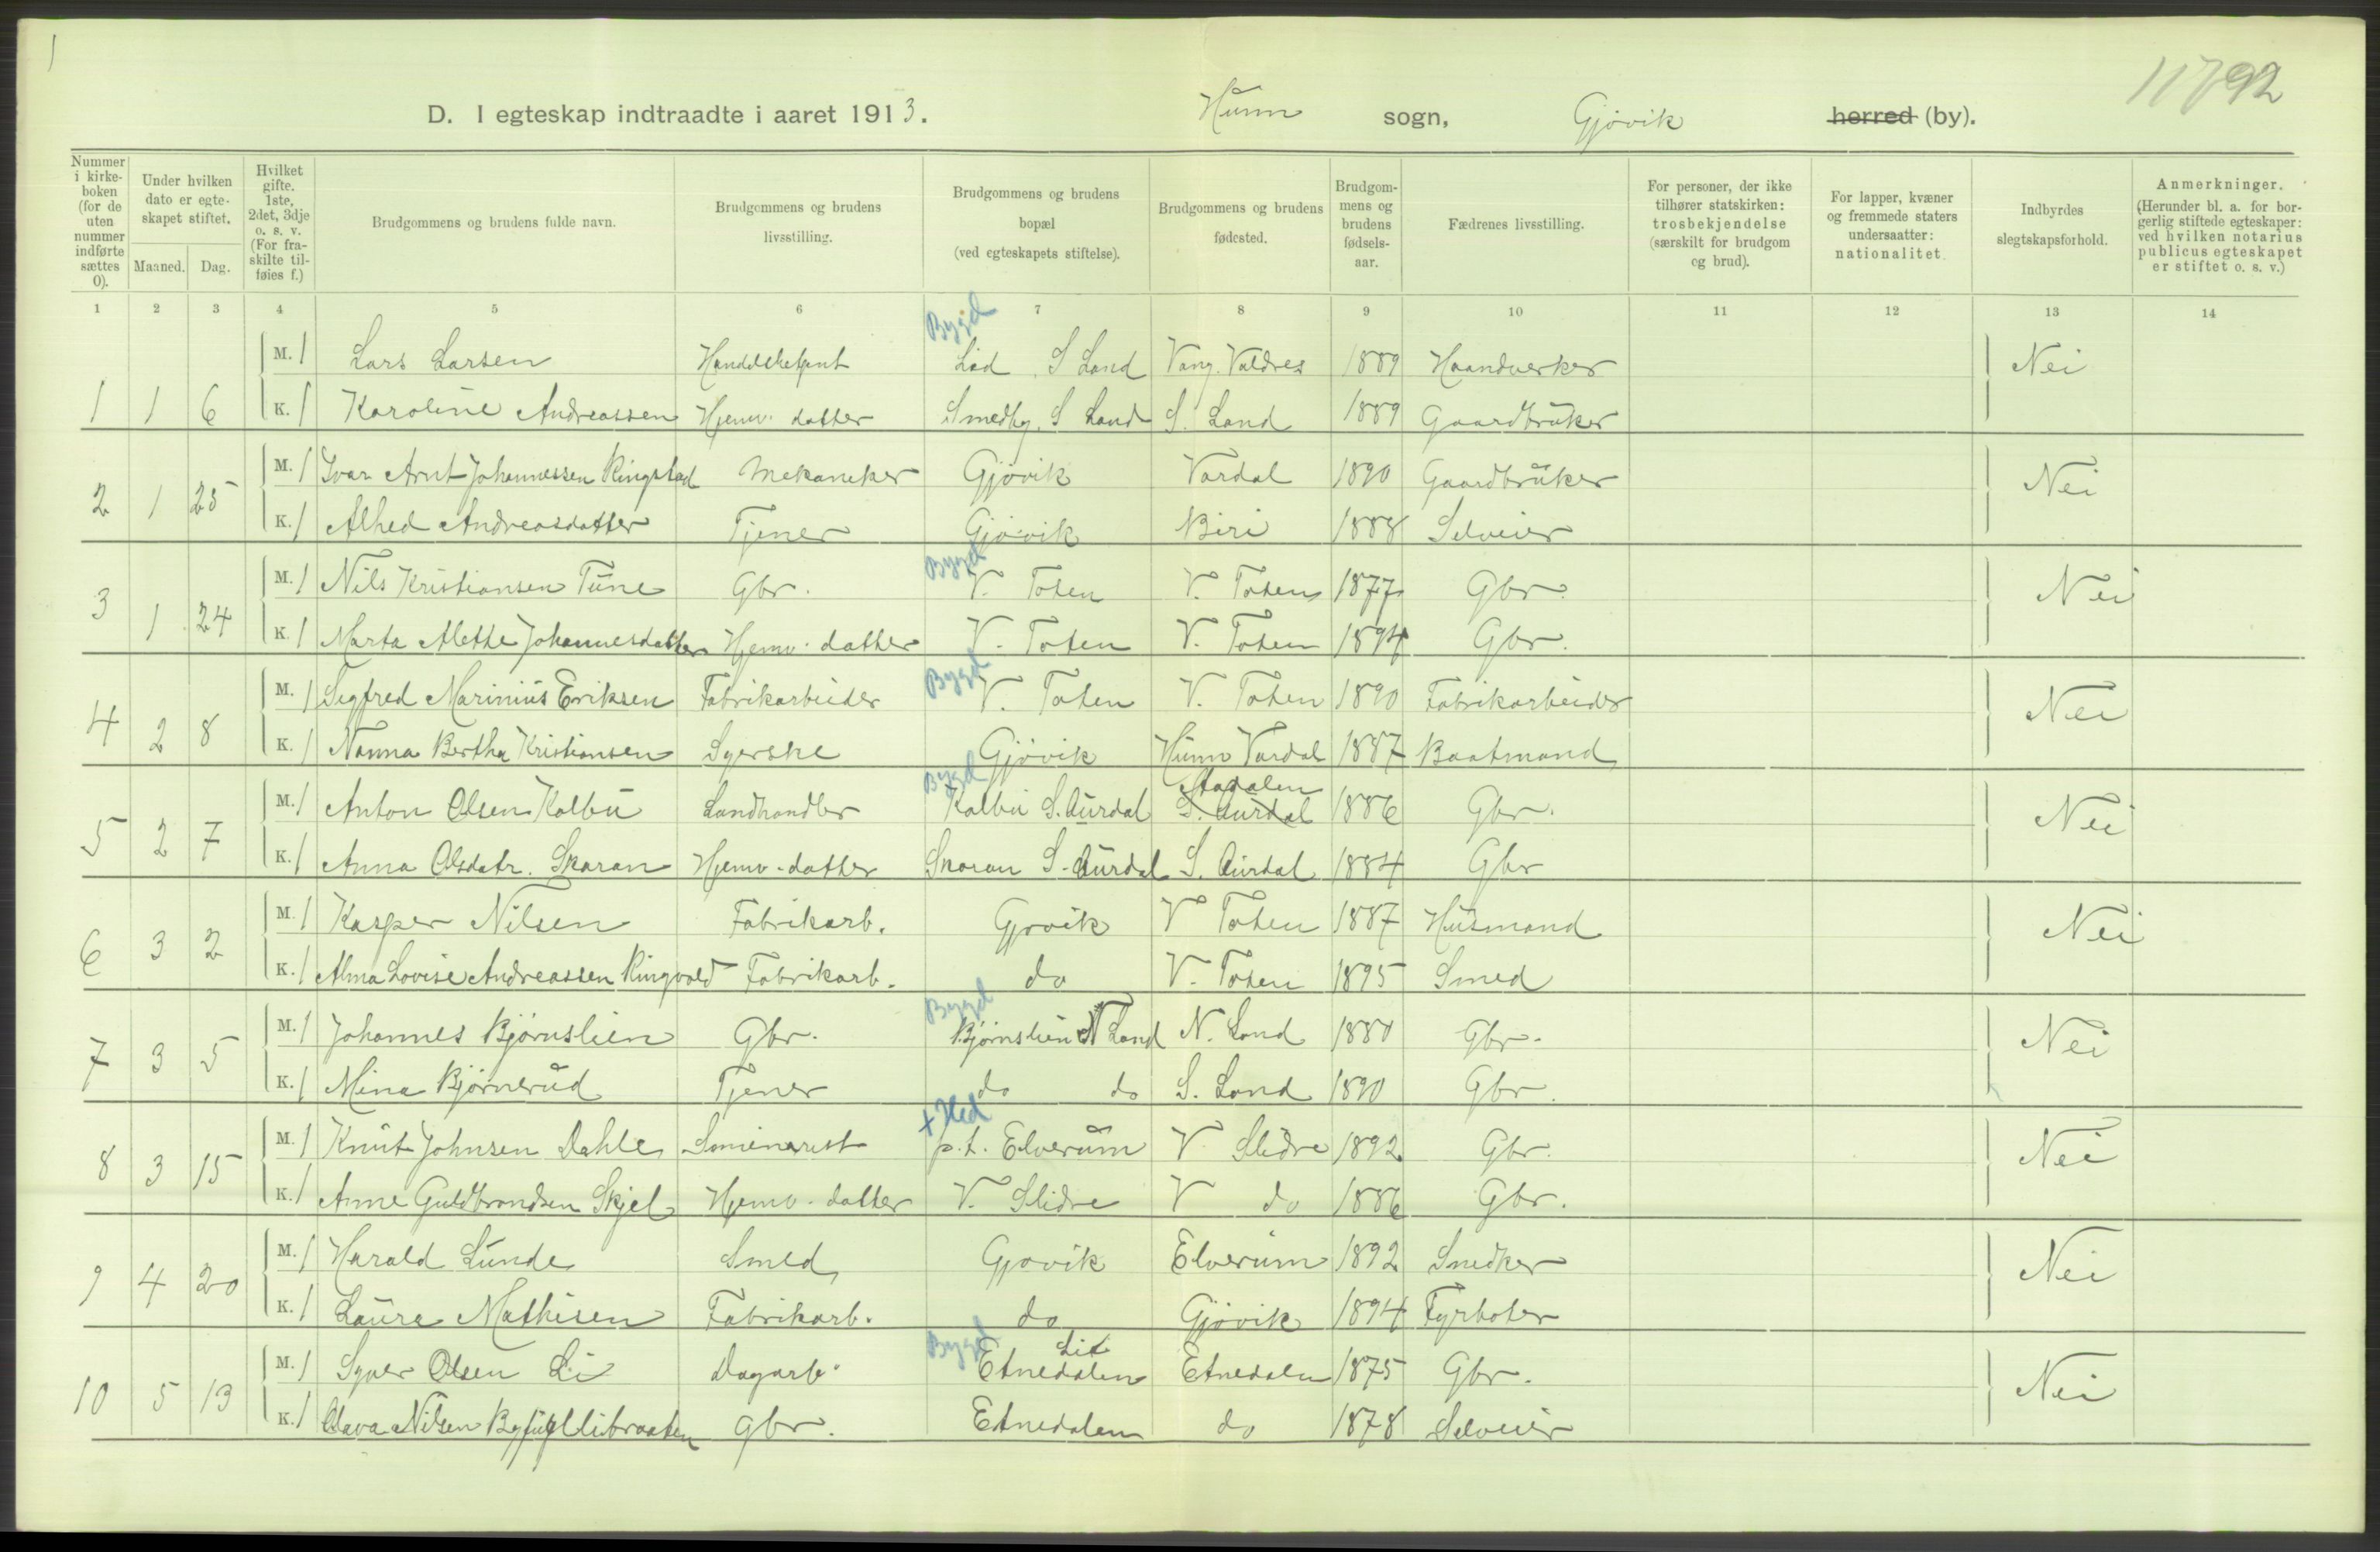 D. I egteskap indtraadte i aaret 1913. Hunn sogn, Gjøvik herred (by).
Nummer i kirke-boken (for de uten nummer indførte sættes 0).
Under hvilken dato er egte-skapet stiftet.
Maaned. Dag.
Hvilket gifte. 1ste, 2det, 3dje o. s. v. (For fra-skilte til-føies f.)
Brudgommens og brudens fulde navn.
Brudgommens og brudens livsstilling.
Brudgommens og brudens bopæl (ved egteskapets stiftelse).
Brudgommens og brudens fødested.
Brudgom-mens og brudens fødsels-aar.
Fædrenes livsstilling.
For personer, der ikke tilhører statskirken: trosbekjendelse (særskilt for brudgom og brud).
For lapper, kvæner og fremmede staters undersaatter: nationalitet.
Indbyrdes slegtskapsforhold.
Anmerkninger. (Herunder bl. a. for bor-gerlig stiftede egteskaper: ved hvilken notarius publicus egteskapet er stiftet o. s. v.)
1 2 3 4 5 6 7 8 9 10 11 12 13 14
Bygd
M. 1 Lars Larsen S Land Vang. Valdres 1889 Haandverker Nei
1 1 6 K. 1 Karoline Andreassen Hjemv. datter Smedby. S Land S. Land 1889 Gaardbruker
M. 1 Ivar Arnt Johannessen Ringstad Mekaneker Gjøvik Vardal 1890 Gaardbruker Nei
2 1 25 K. 1 Alhed Andreasdatter Tjener Gjøvik Biri 1888 Selveier
Bygd
M. 1 Nils Kristiansen Tune Gbr. V. Toten V. Toten 1877 Gbr. Nei
3 1 24 K. 1 Marta Alette Johannesdatter Hjemv. datter V. Toten V. Toten 1894 Gbr.
Bygd
M. 1 Sigfred Marinius Eriksen Fabrikarbeider V. Toten V. Toten 1890 Fabrikarbeider Nei
4 2 8 K. 1 Nanna Bertha Kristiansen Syerske Gjøvik Hunn Vardal 1887 Baatmand
Bygd
M. 1 Anton Olsen Kolbu Landhandler Kolbu S. Aurdal S. Aurdal 1886 Gbr. Nei
5 2 7 K. 1 Anna Olsdatr. Skaran Hjemv. datter Skaran S. Aurdal S. Aurdal 1884 Gbr
M. 1 Kasper Nilsen Fabrikarb. Gjøvik V Toten 1887 Husmand Nei
6 3 2 K. 1 Alma Lovise Andreassen Ringvold Fabrikarb. do V. Toten 1895 Smed
Bygd
M. 1 Johannes Bjørnslien Gbr. Bjørnslien N Land N. Land 1880 Gbr. Nei
7 3 5 K. 1 Mina Bjørnerud Tjener do do S. Land 1890 Gbr.
+ Hed
M. 1 Knut Johnsen Dahle Seminarist p.t. Elverum V Slidre 1892 Gbr. Nei
8 3 15 K. 1 Anne Guldbrandsen Skjel Hjemv. datter V. Slidre V do 1886 Gbr.
M. 1 Harald Lunde Smed Gjøvik Elverum 1892 Snedker Nei
9 4 20 K. 1 Laura Mathisen Fabrikarb. do Gjøvik 1894 Fyrbøter
Bygd
M. 1 Syver Olsen Li Dagarb. Etnedalen Etnedalen 1875 Gbr. Nei
10 5 13 K. 1 Olava Nilsen Gbr. Etnedalen do 1878 Selveier